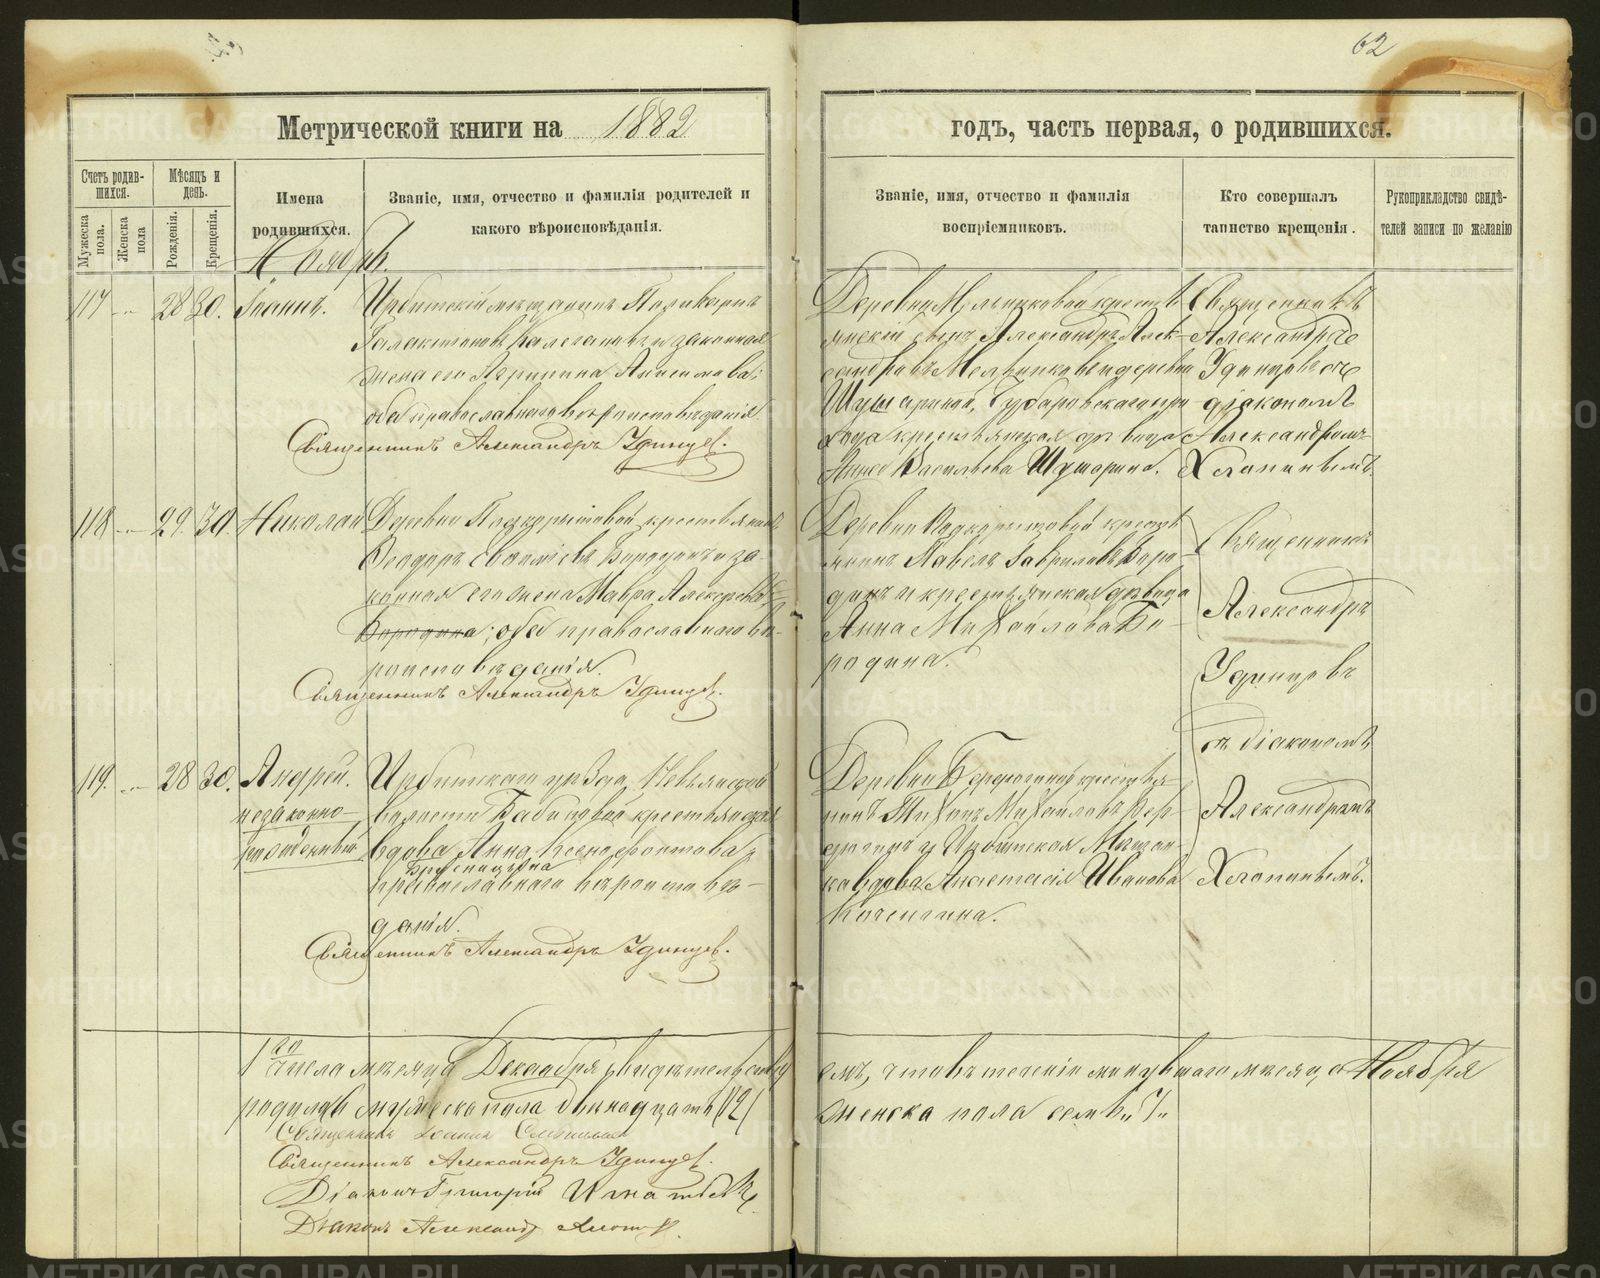 62
Метрической книги на 1882
годъ, часть первая, о родившихся.
Счетъ родив-
шихся.
Мѣсяцъ и
день.
Мужеска
пола.
Женска
пола
Рожденія.
Крещенія.
Имена
родившихся.
Званіе, имя, отчество и фамилія родителей и
какого вѣроисповѣданія.
Званіе, имя, отчество и фамилія
воспріемниковъ.
Кто совершалъ
таинство крещенія.
Рукоприкладство свидѣ-
телей записи по желанію
Ноябрь.
117 " 28 30. Іоаннъ.
Ирбитскій мѣщанинъ Поликарпъ
Галактіоновъ и законная
жена его Агрипина Анисимова;
оба православнаго вѣроисповѣданія
Священникъ Александръ Удинцев.
Деревни Мельниковой кресть-
янскій сынъ Александръ Алек-
сандровъ Мельниковъ и деревни
Шушариной, при-
хода крестьянская дѣвица
Васильева Шушарина.
Священникъ
Александръ
Удинцовъ съ
діакономъ
Александромъ
Хлопинымъ.
118 " 29. 30. Николай
Деревни Подкорытовой крестьянинъ
Ѳеодоръ Бородинъ и за-
конная его жена Мавра
Бородина; оба православнаго вѣ-
роисповѣданія.
Священникъ Александръ Удинцев.
Деревни Подкорытовой кресть-
янинъ Павелъ Гавриловъ Боро-
динъ и крестьянская дѣвица
Анна Михайлова Бо-
родина.
Священникъ
Александръ
Удинцовъ
съ діакономъ
Александромъ
Хлопинымъ.
119. " 28 30. Андрей.
незаконно-
рожденный
Ирбитскаго уѣзда, Невьянской
волости крестьянская
вдова Анна Ксенофонтова
Брусницына
православнаго вѣроисповѣ-
данія.
Священникъ Александръ Удинцев.
Деревни крестья-
нинъ Тихонъ Михайловъ
и Ирбитская Мѣщан-
ка вдова Анастасія Иванова
1го числа мѣсяца Декабря свидѣтельству
емъ, что въ теченіи минувшаго мѣсяца Ноября
родилось мужеска пола двѣнадцать /12/
женска пола семь "7"
Священникъ Іоаннъ
Священникъ Александръ Удинцев.
Діаконъ Григорій Игнатьевъ
Діаконъ Александр Хлопин.